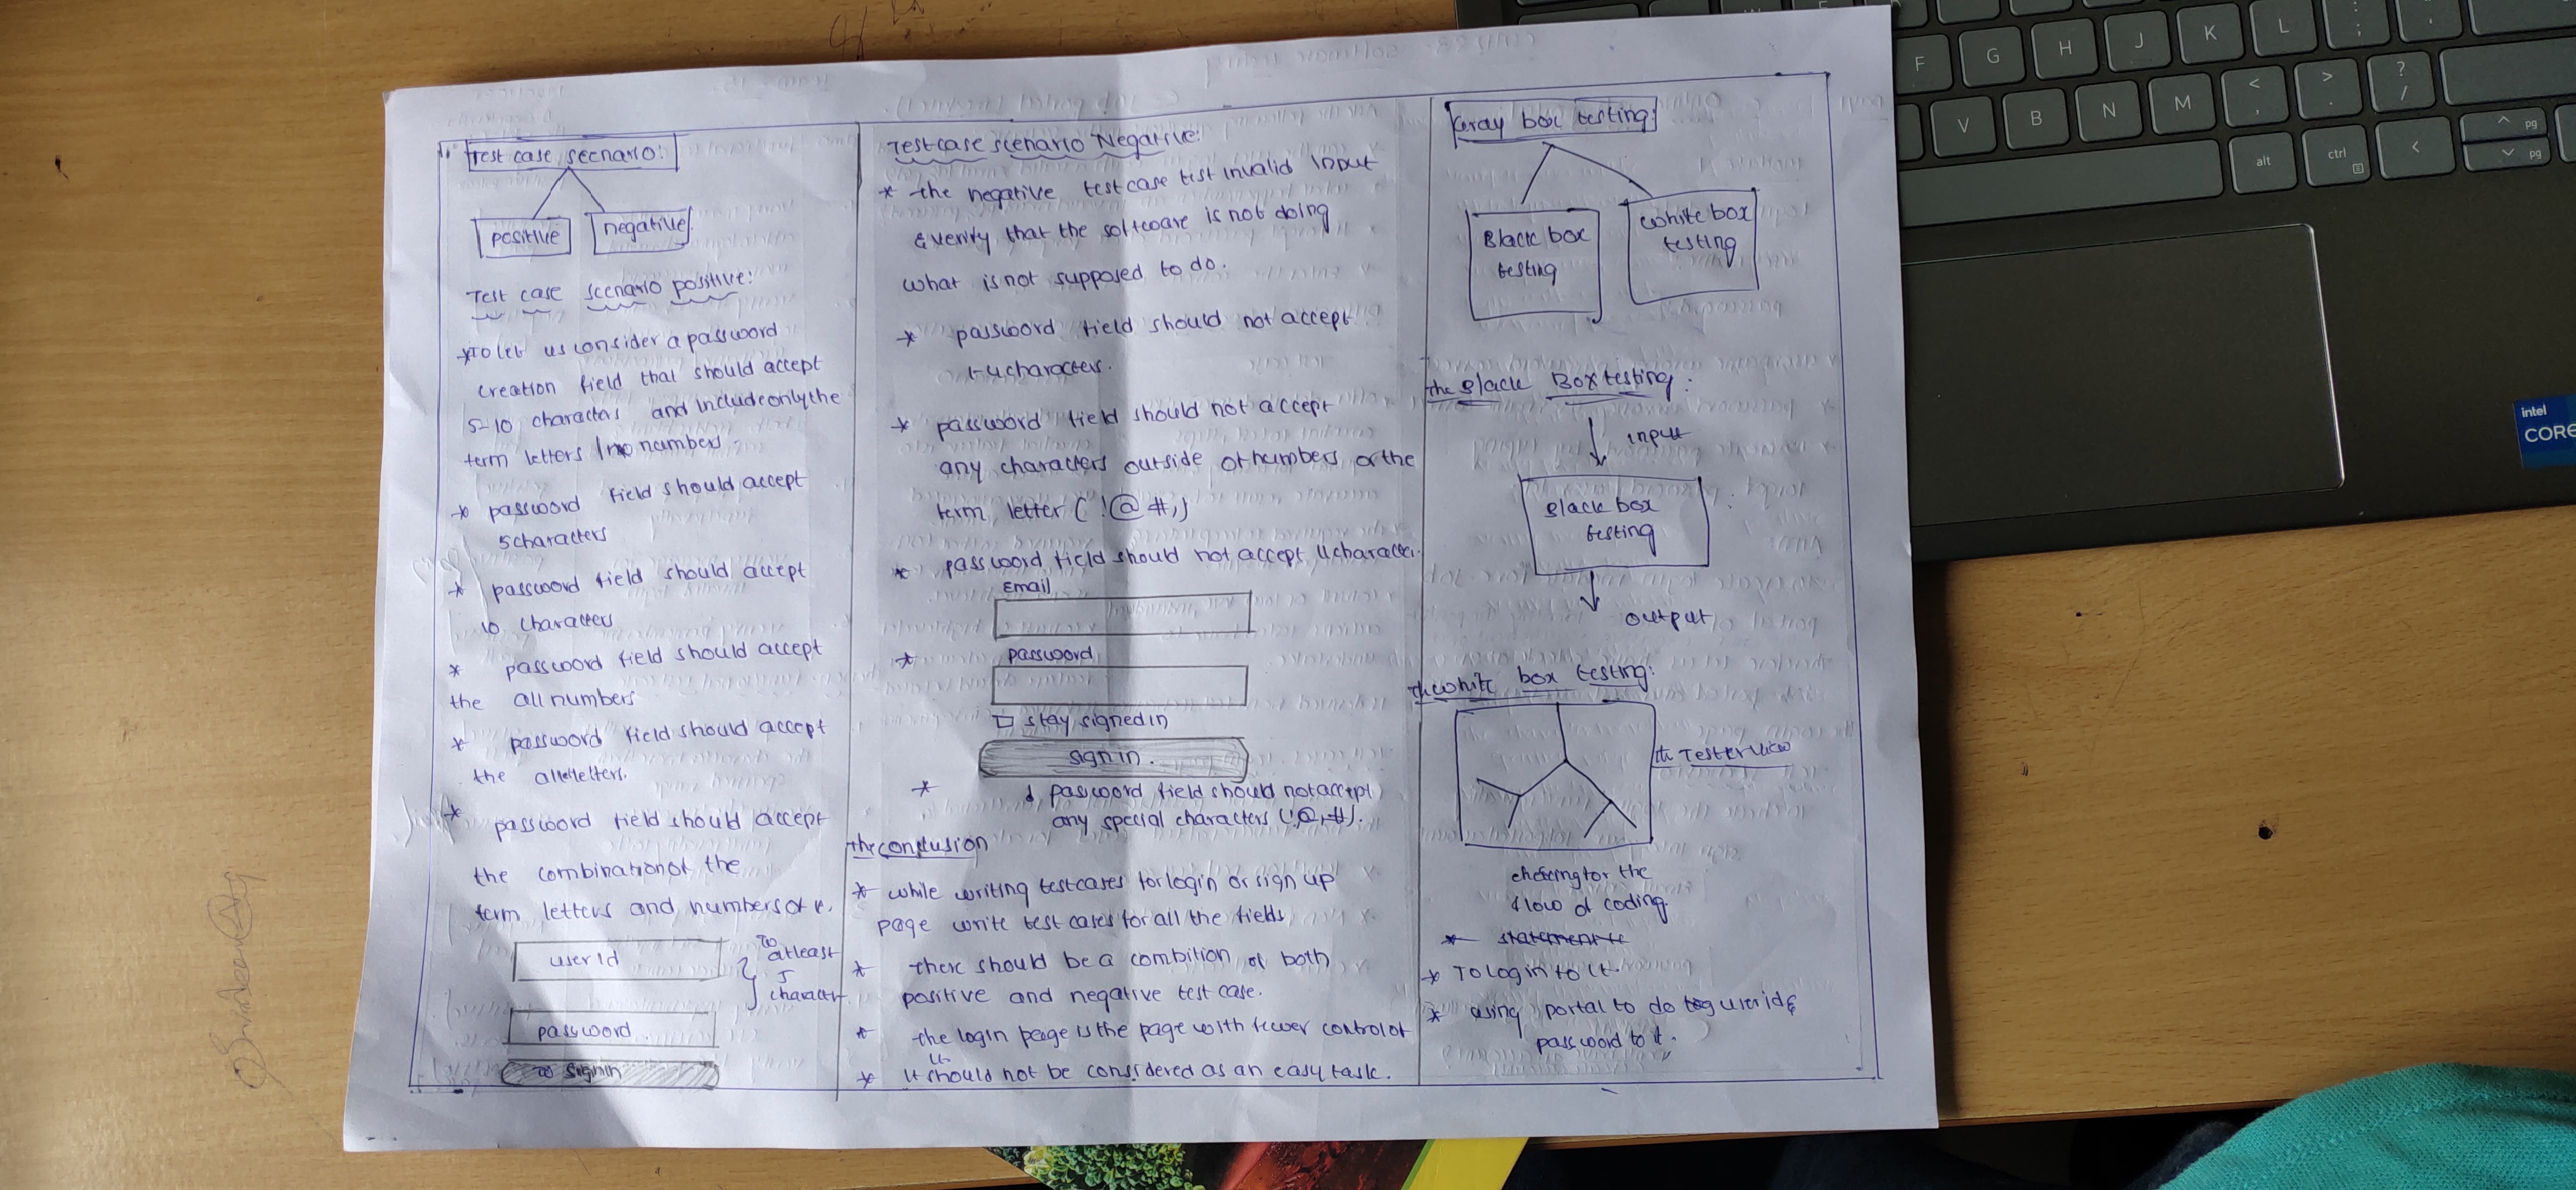 Test case scenario:
positive
negative
Test case scenario positive:
* To let us consider a password
creation field that should accept
5-10 characters and include only the
term letters / numbers.
* password field should accept
5 characters
* password field should accept
10 characters
* password field should accept
the all numbers
* password field should accept
the all letters.
* password field should accept
the combination of the
term letters and numbers of it,
user id
password.
to signin
atleast
5
character
Test case scenario Negative:
* the negative test case test invalid input
& verify that the software is not doing
what is not supposed to do.
* password field should not accept
1-4 characters.
* password field should not accept
any characters outside of numbers or the
term letter (!@#,)
* password field should not accept 11 character.
Email
*
password
□ stay signed in
sign in.
* & password field should not accept
any special characters (!@,#).
the conclusion
* while writing test cases for login or sign up
page write test cases for all the fields
* there should be a combition of both
positive and negative test case.
* the login page is the page with fewer control of
it
* it should not be considered as an easy task.
Gray box testing:
Black box
testing
white box
testing
the Black Box testing:
input
Black box
testing
output
the white box testing:
the Tester view
the
flow of coding.
* statements
* To login to it.
* using portal to do userid &
password to it.
intel
CORE
F
V
G
B
H
N
J
M
K
alt
<
,
L
ctrl
>
.
;
:
?
/
<
^ pg
pg